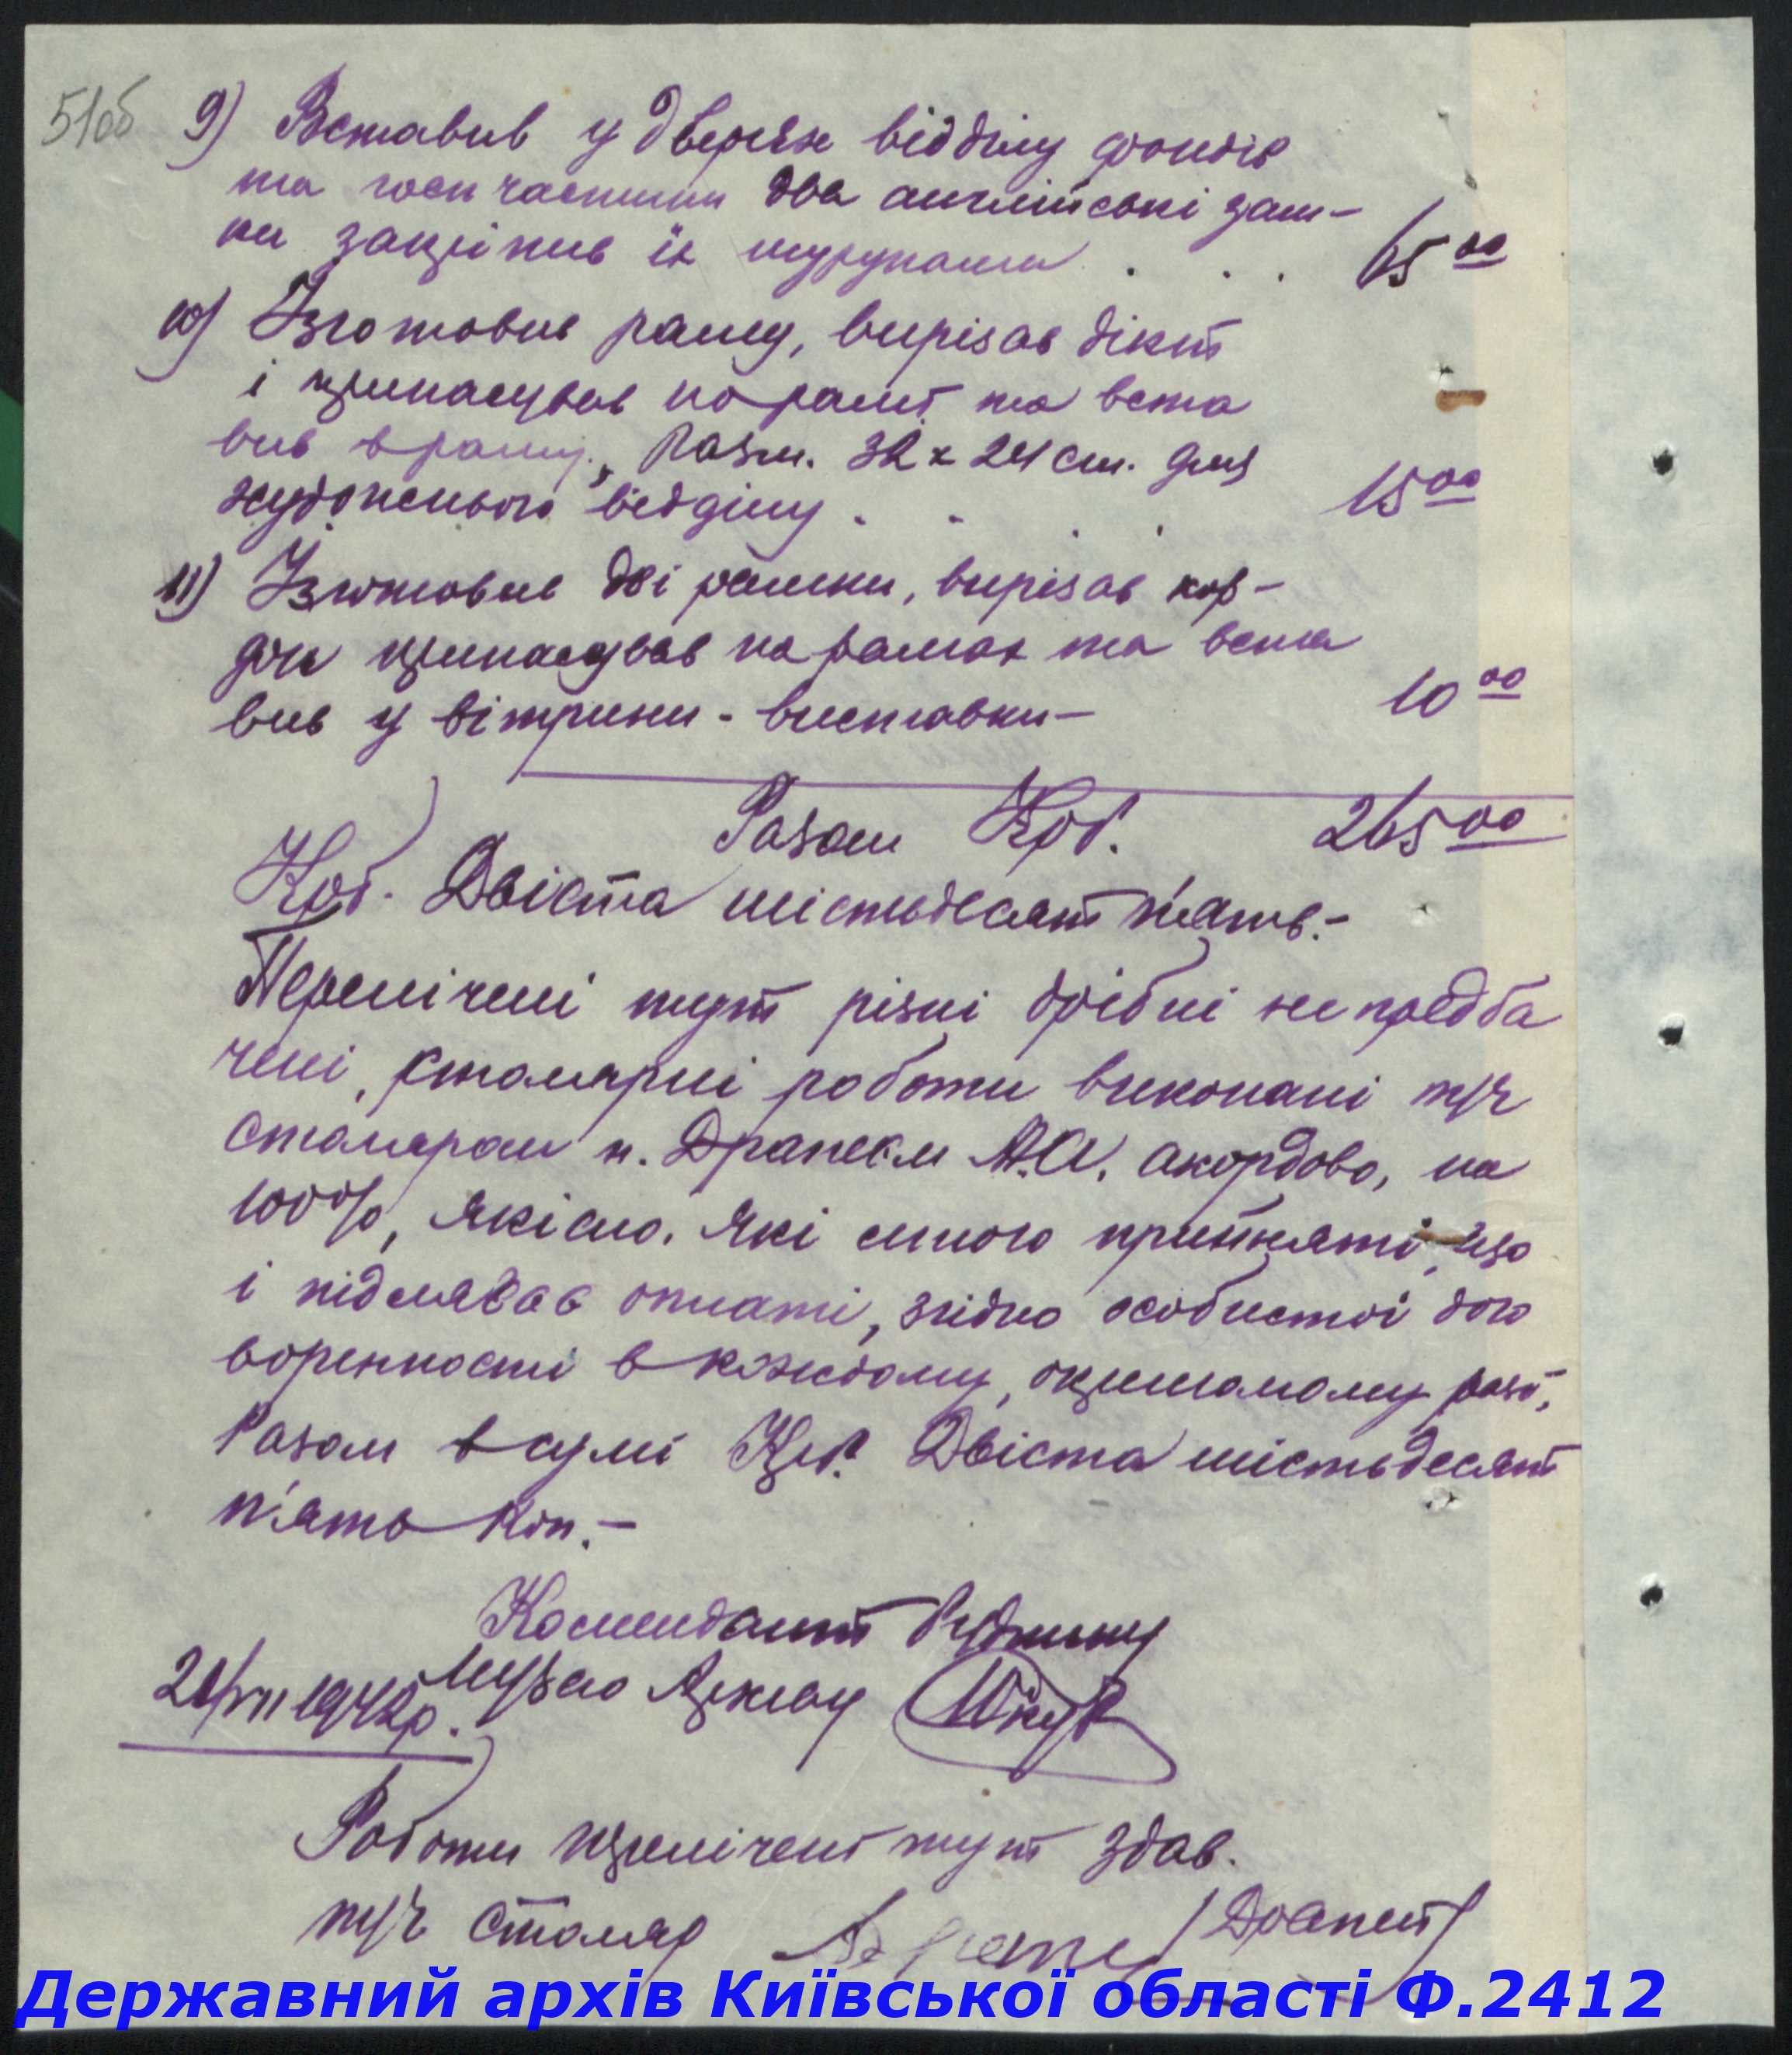 51об
9) Вставив у дверях відділу фондів
та госп частини два англійські зам-
ки закріпив їх шурупами . . . 65 00
10) Ізготовив раму, вирізав дікт
і припасував по рамі та вста
вив в раму, Разм. 32 х 24 см. для
художнього відділу . . . 15 00
11) Ізготовив дві рамки, вирізав кар-
дон припасував на рамах та вста
вив у вітрини - виставки - 10 00
Разом Крб. 265 00
Крб. Двіста шістьдесят п'ять.-
Перелічені тут різні дрібні не предба
чені, столярні роботи виконані т/ч
столяром п. Драпеєм А.А. акордово, на
100%, якісно. Які мною прийняті, що
і підлягає оплаті, згідно особистої дого
воренности в кождому, окремому разі,
Разом в сумі Крб. Двіста шістьдесят
п'ять коп.-
Комендант будинку
Музею Архіву
21/VII 1942р.
Роботи перелічені тут здав.
т/ч столяр /Драпей/
Державний архів Київської області Ф.2412